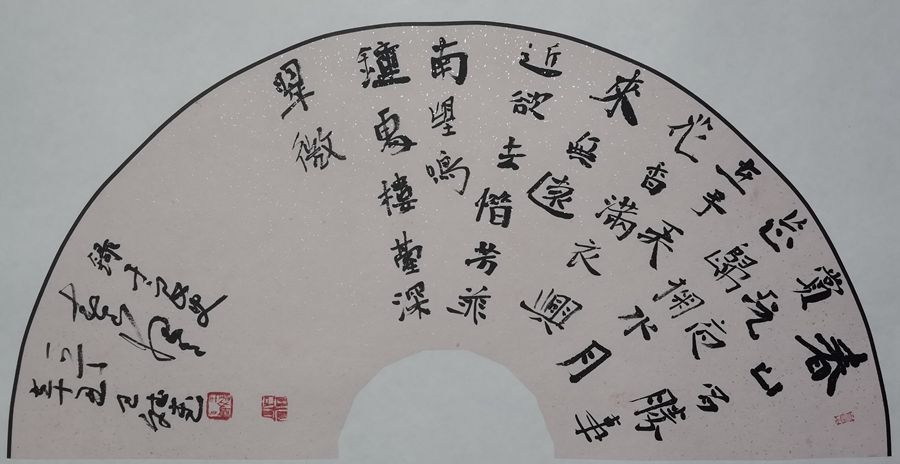 春山多勝事
賞玩夜
忘歸掬水月
在手弄
花香滿衣興
來無遠
近欲去惜芳菲
南望鳴
鐘處樓臺深
翠微
錄于良史
辛丑